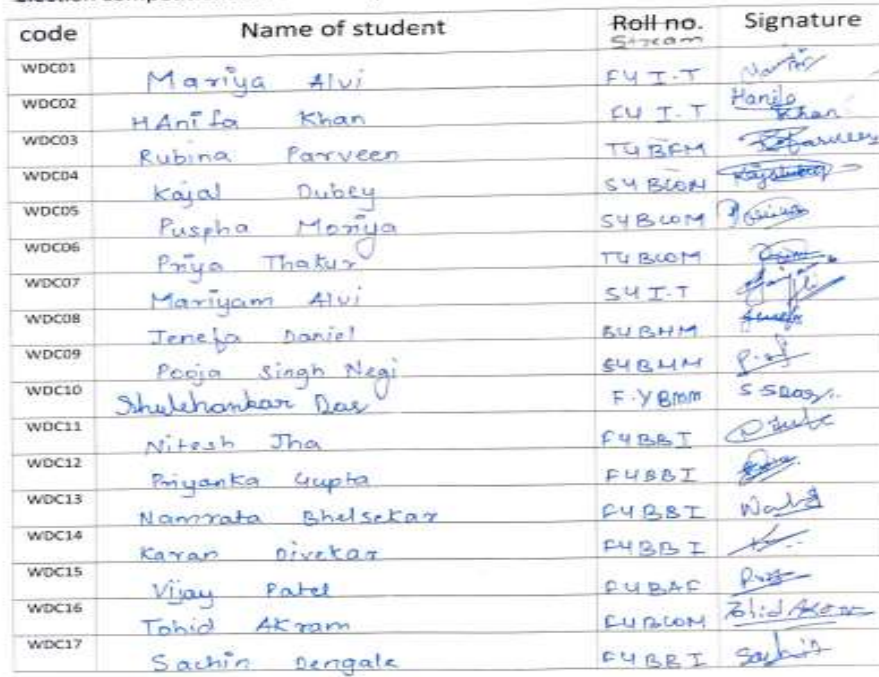 code Name of student Roll no. Signature
Stream
WDC01 Mariya Alvi FY I.T
WDC02 HAnifa Khan FY I.T Hanifa Khan
WDC03 Rubina Parveen TYBFM
WDC04 Kajal Dubey SYBCOM
WDC05 Puspha Moriya SYBCOM
WDC06 Priya Thakur TYBCOM
WDC07 Mariyam Alvi SY I.T
WDC08 Jenefa Daniel
WDC09 Pooja Singh Negi SYBMM
WDC10 Das F.YBmm
WDC11 Nitesh Jha FYBBI
WDC12 Priyanka Gupta FYBBI
WDC13 Namrata Bhelsekar FYBBI
WDC14 Karan Divekar FYBBI
WDC15 Vijay Patel FYBAF
WDC16 Tohid AKram FYBCOM Tohid
WDC17 Sachin Dengale FYBBI Sachin